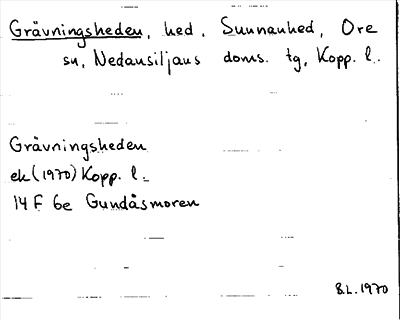 Grävningsheden, hed, Sunnanhed, Ore
sn, Nedansiljans doms. tg, Kopp. l.
Grävningsheden
ek (1970) Kopp. l.
14 F 6e Gundåsmoren
B.L. 1970